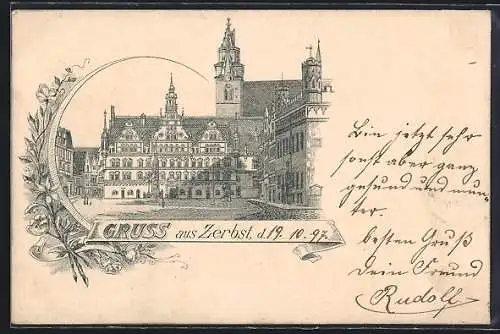 GRUSS aus Zerbst, d. 19. 10. 97.
Bin jetzt sehr
sonst aber ganz
gesund und mun-
ter.
besten Gruß
Dein Freund
Rudolf